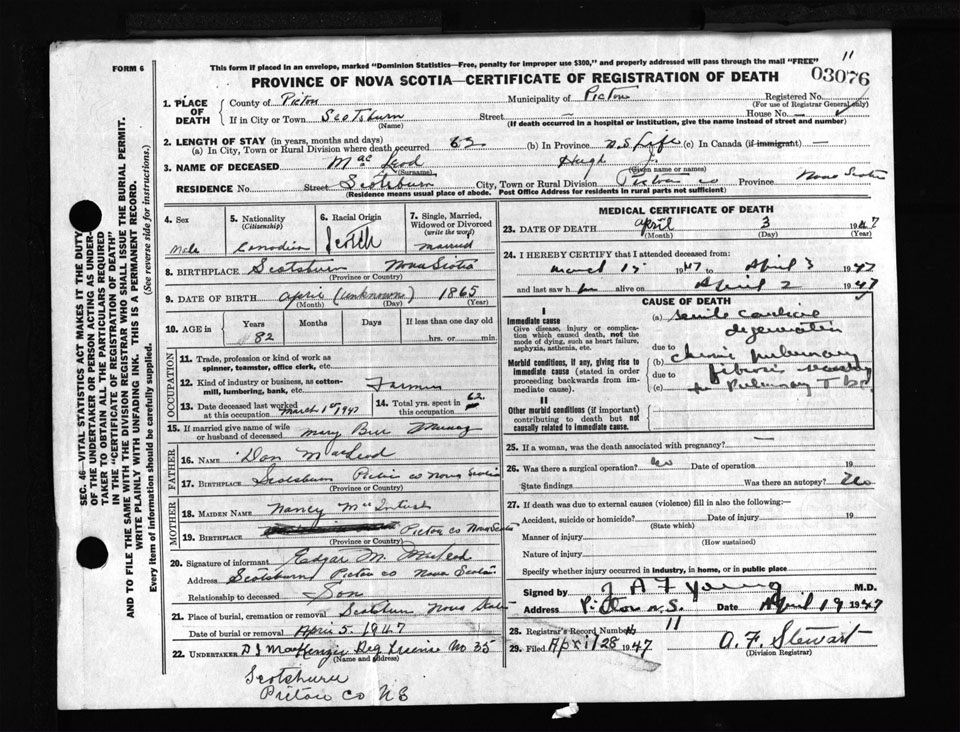 FORM 6
This form if placed in an envelope, marked "Dominion Statistics—Free, penalty for improper use $300," and properly addressed will pass through the mail "FREE"
11
PROVINCE OF NOVA SCOTIA—CERTIFICATE OF REGISTRATION OF DEATH
03076
1. PLACE OF DEATH
County of Pictou Municipality of Pictou Registered No.
(For use of Registrar General only)
If in City or Town Scotsburn Street — House No. —
(Name) (If death occurred in a hospital or institution, give the name instead of street and number)
2. LENGTH OF STAY (in years, months and days)
(a) In City, Town or Rural Division where death occurred 82 (b) In Province N.S. Life (c) In Canada (if immigrant) —
3. NAME OF DECEASED MacLeod Hugh J.
(Surname) (Given name or names)
RESIDENCE No. Street Scotsburn City, Town or Rural Division Pictou Co Province Nova Scotia
(Residence means usual place of abode. Post Office Address for residents in rural parts not sufficient)
4. Sex
Male
5. Nationality
(Citizenship)
Canadian
6. Racial Origin
Scotch
7. Single, Married, Widowed or Divorced
(write the word)
married
8. BIRTHPLACE Scotsburn Nova Scotia
(Province or Country)
9. DATE OF BIRTH April (unknown) 1865
(Month) (Day) (Year)
10. AGE in Years Months Days If less than one day old
82 hrs. or min.
OCCUPATION
11. Trade, profession or kind of work as spinner, teamster, office clerk, etc.
12. Kind of industry or business, as cotton-mill, lumbering, bank, etc. Farmer
13. Date deceased last worked at this occupation March 1st 1947
14. Total yrs. spent in this occupation 62
15. If married give name of wife or husband of deceased Mary Murray
FATHER
16. NAME Dan MacLeod
17. BIRTHPLACE Scotsburn Pictou co Nova Scotia
(Province or Country)
MOTHER
18. MAIDEN NAME Nancy MacIntosh
19. BIRTHPLACE Pictou co Nova Scotia
(Province or Country)
20. Signature of informant Edgar M. MacLeod
Address Scotsburn Pictou co Nova Scotia
Relationship to deceased Son
21. Place of burial, cremation or removal Scotsburn Nova Scotia
Date of burial or removal April 5. 1947
22. UNDERTAKER D J MacKenzie Reg License No 35
(Name and address)
Scotsburn
Pictou co NS
MEDICAL CERTIFICATE OF DEATH
23. DATE OF DEATH April 3 1947
(Month) (Day) (Year)
24. I HEREBY CERTIFY that I attended deceased from:
March 1947 to April 3 1947
and last saw him alive on April 2 1947
CAUSE OF DEATH
I
Immediate cause
Give disease, injury or complication which caused death, not the mode of dying, such as heart failure, asphyxia, asthenia, etc.
Morbid conditions, if any, giving rise to immediate cause (stated in order proceeding backwards from immediate cause).
II
Other morbid conditions (if important) contributing to death but not causally related to immediate cause.
(a) Senile cardiac
degeneration
due to
(b) chronic pulmonary
fibrosis
due to
(c) Pulmonary
25. If a woman, was the death associated with pregnancy? —
26. Was there a surgical operation? no Date of operation 19
State findings Was there an autopsy? no
27. If death was due to external causes (violence) fill in also the following:—
Accident, suicide or homicide? Date of injury 19
(State which)
Manner of injury
(How sustained)
Nature of injury
Specify whether injury occurred in industry, in home, or in public place
Signed by J A F Young M.D.
Address Pictou N.S. Date April 19 1947
28. Registrar's Record Number 11
29. Filed April 28 1947 A. F. Stewart
(Division Registrar)
SEC. 46—VITAL STATISTICS ACT MAKES IT THE DUTY
OF THE UNDERTAKER OR PERSON ACTING AS UNDER-
TAKER TO OBTAIN ALL THE PARTICULARS REQUIRED
IN THE "CERTIFICATE OF REGISTRATION OF DEATH"
AND TO FILE THE SAME WITH THE DIVISION REGISTRAR WHO SHALL ISSUE THE BURIAL PERMIT.
WRITE PLAINLY WITH UNFADING INK. THIS IS A PERMANENT RECORD.
Every item of information should be carefully supplied. (See reverse side for instructions.)